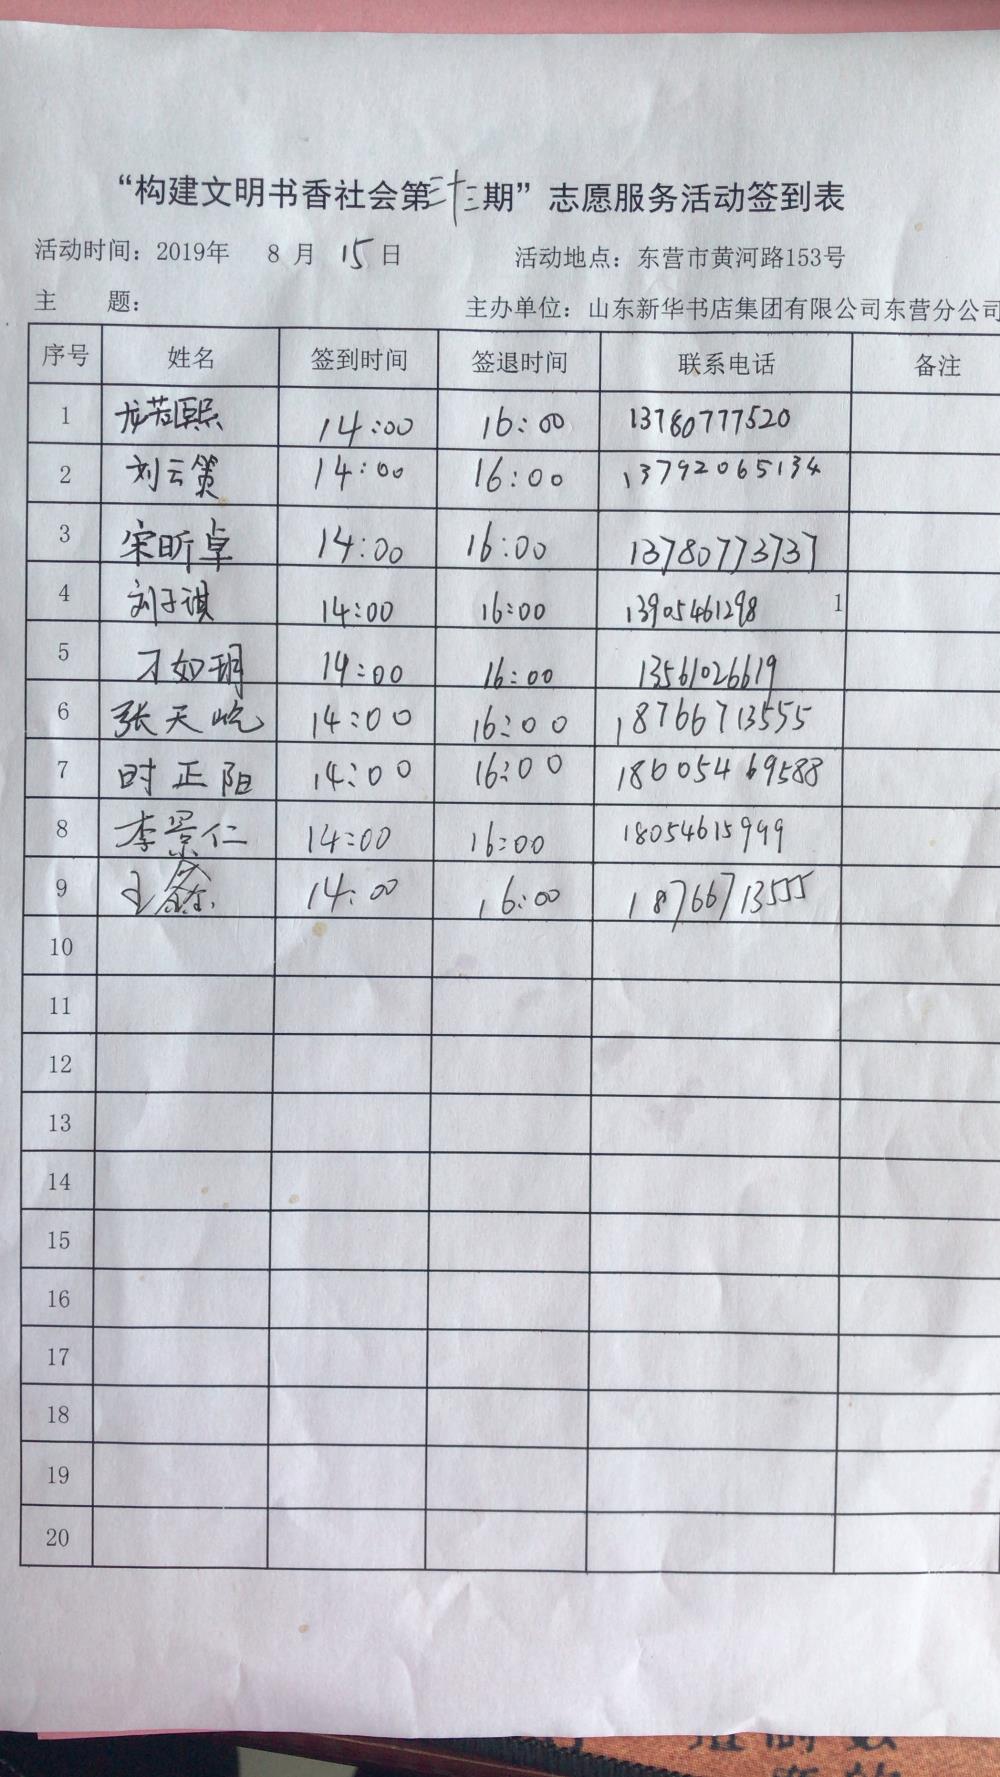 “构建文明书香社会第三十三期”志愿服务活动签到表
活动时间：2019年 8 月 15 日 活动地点：东营市黄河路153号
主 题： 主办单位：山东新华书店集团有限公司东营分公司
序号 姓名 签到时间 签退时间 联系电话 备注
1 龙若熙 14:00 16:00 13780777520
2 刘云策 14:00 16:00 13792065134
3 宋昕卓 14:00 16:00 13780773737
4 刘子琪 14:00 16:00 13905461298 1
5 才如玥 14:00 16:00 13561026619
6 张天屹 14:00 16:00 18766713555
7 时正阳 14:00 16:00 18605469588
8 李景仁 14:00 16:00 18054615999
9 王鑫 14:00 16:00 18766713555
10
11
12
13
14
15
16
17
18
19
20